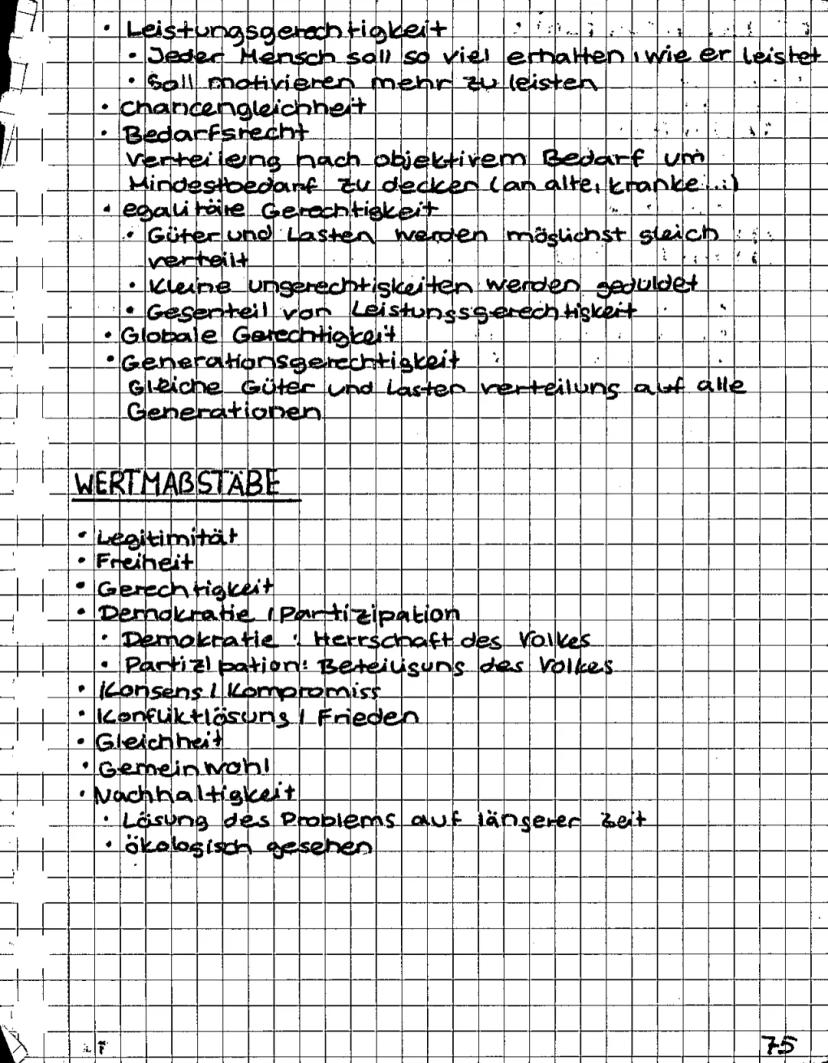 • Leistungsgerechtigkeit
• Jeder Mensch soll so viel erhalten, wie er leistet
• Soll motivieren mehr zu leisten
• Chancengleichheit
• Bedarfsrecht
Verteilung nach objektivem Bedarf um
Mindestbedarf zu decken (an alte, kranke...)
• egalitäre Gerechtigkeit
• Güter und Lasten werden möglichst gleich
verteilt
• Kleine ungerechtigkeiten werden geduldet
• Gegenteil von Leistungsgerechtigkeit
• Globale Gerechtigkeit
• Generationsgerechtigkeit
Gleiche Güter und Lasten verteilung auf alle
Generationen
WERTMAßSTÄBE
• Legitimität
• Freiheit
• Gerechtigkeit
• Demokratie / Partizipation
• Demokratie: Herrschaft des Volkes
• Partizipation: Beteiligung des Volkes
• Konsens / Kompromiss
• Konfliktlösung / Frieden
• Gleichheit
• Gemeinwohl
• Nachhaltigkeit
• Lösung des Problems auf längerer Zeit
• ökologisch gesehen
75